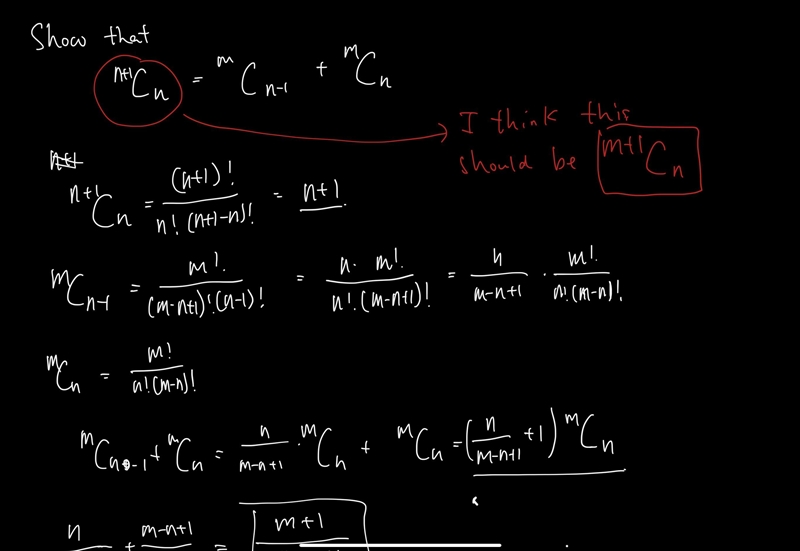 Show that
ⁿ⁺¹Cₙ = ᵐCₙ₋₁ + ᵐCₙ
I think this
should be ᵐ⁺¹Cₙ
ⁿ⁺¹Cₙ = (n+1)! / n! (n+1-n)! = n+1
ᵐCₙ₋₁ = m! / (m-n+1)! (n-1)! = n · m! / n! · (m-n+1)! = n / m-n+1 · m! / n! (m-n)!
ᵐCₙ = m! / n! (m-n)!
ᵐCₙ₋₁ + ᵐCₙ = n / m-n+1 · ᵐCₙ + ᵐCₙ = (n / m-n+1 + 1) ᵐCₙ
n + m-n+1 = m+1